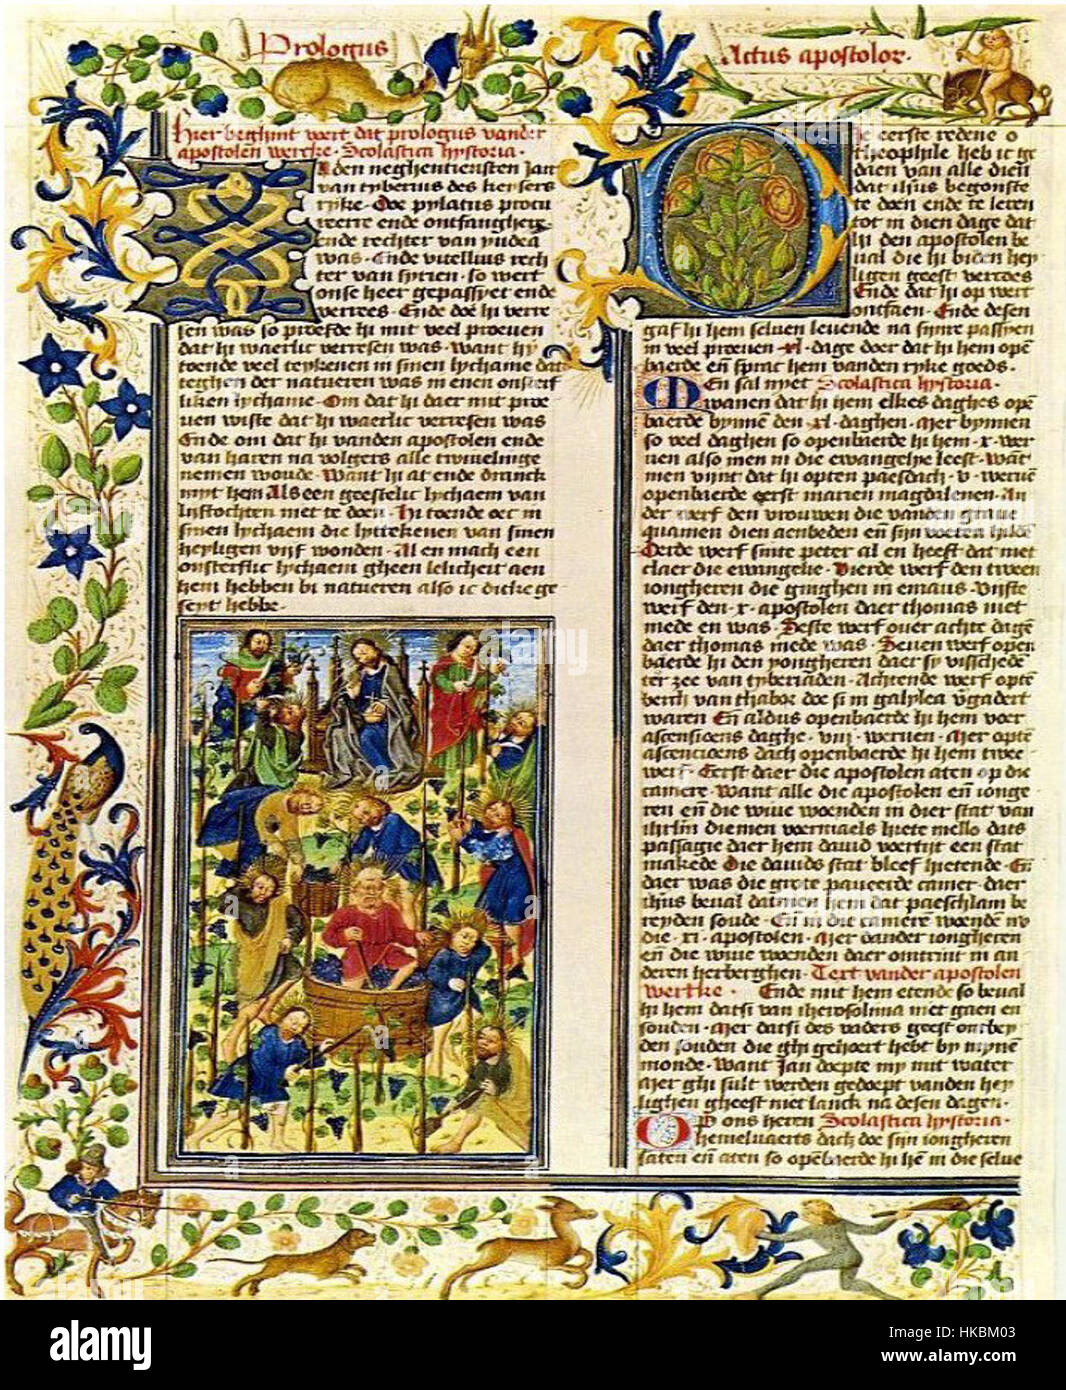 Prologus
Actus apostolor.
Hier beghint voert dat prologus vander
apostolen wercke. Scolastica hystoria.
den neghentiensten Jair
van tyberius des keysers
ryke. Doe pylatus procu
reerre ende ontfangherig
ende rechter van yudea
was. Ende vitellius rech
ter van syrien. so wert
onse heer gepassyet ende
verrees. Ende doe hi verre
sen was so proefde hi mit veel proeuen
dat hi waerlic verresen was. Want hy
toende veel teykenen in sinen lychame dat
teghen der natueren was in enen onsterf
liken lychame. Om dat hi daer mit proe
uen wiste dat hi waerlic verresen was
Ende om dat hi vanden apostolen ende
van haren na volgers alle twiuelinge
nemen woude. Want hi at ende dranck
myt hem Als een geestelic lychaem van
lijftochten niet te doen. Hi toende oec in
sinen lychaem die lyttekenen van sinen
heyligen vijf wonden. Al en mach een
onsterflic lychaem gheen lelicheit aen
hem hebben bi natueren also ic dicke ge
seyt hebbe.
ie eerste redene o
theophile heb ic ge
daen van alle dien
dat ihus begonste
te doen ende te leren
tot in dien dage dat
hi den apostolen be
ual die hi biden hey
ligen geest vercoes
Ende dat hi op wert
ontfaen. Ende desen
gaf hi hem seluen leuende na sijnre passyen
in veel proeuen xl. dage doer dat hi hem open
baerde en sprac hem vanden ryke goeds.
En sal nyet Scolastica hystoria.
wanen dat hi hem elkes daghes open
baerde bynnen den xl. daghen. Mer bynnen
so veel daghen so openbaerde hi hem. x. wer
uen also men in die ewangelye leest. Wat
men vijnt dat hi opten paesdach. v. weruen
openbaerde eerst marien magdalenen. An
der werf den vrouwen die vanden graue
quamen dien aenbeden en sijn voeten hilden
Derde werf sinte peter al en heeft dat niet
claer die ewangelie. Vierde werf den tween
iongheren die ginghen in emaus. Vijfte
werf den. x. apostolen daer thomas niet
mede en was. Seste werf ouer achte dagen
daer thomas mede was. Seuen werf open
baerde hi den yongheren daer sy visscheden
ter zee van tyberiaden. Achtende werf opten
berch van thabor doe si in galylea vergadert
waren En aldus openbaerde hi hem voer
ascensioens daghe. viii. weruen. Mer opten
ascencioens dach openbaerde hi hem twee
werf Eerst daer die apostolen aten op die
camere. Want alle die apostolen en ionge
ren en die wiue woenden in dier stat van
ihrlm diemen voermaels hiete mello dats
passagie daer hem dauid voertijt een stat
makede Die dauids stat bleef hietende. En
daer was die grote paueerde camer daer
ihus beual datmen hem dat paeschlam be
reyden soude. En in die camere woenden nv
die. xi. apostolen. Mer dander iongheren
en die wiue woenden daer omtrint in an
deren herberghen. Tert vander apostolen
wercke. Ende mit hem etende so beual
hi hem datsi van iherosolima niet gaen en
souden. Mer datsi des vaders geest ontbey
den souden die ghi gehoert hebt by mynen
monde. Want Jan doepte my mit water
Mer ghi sult werden gedoept vanden hey
lighen gheest niet lanck na desen dagen.
Op ons heren Scolastica hystoria.
hemeluaerts dach doe sijn iongheren
saten en aten so openbaerde hi hem in die selue
alamy
Image ID: HKBM03
www.alamy.com